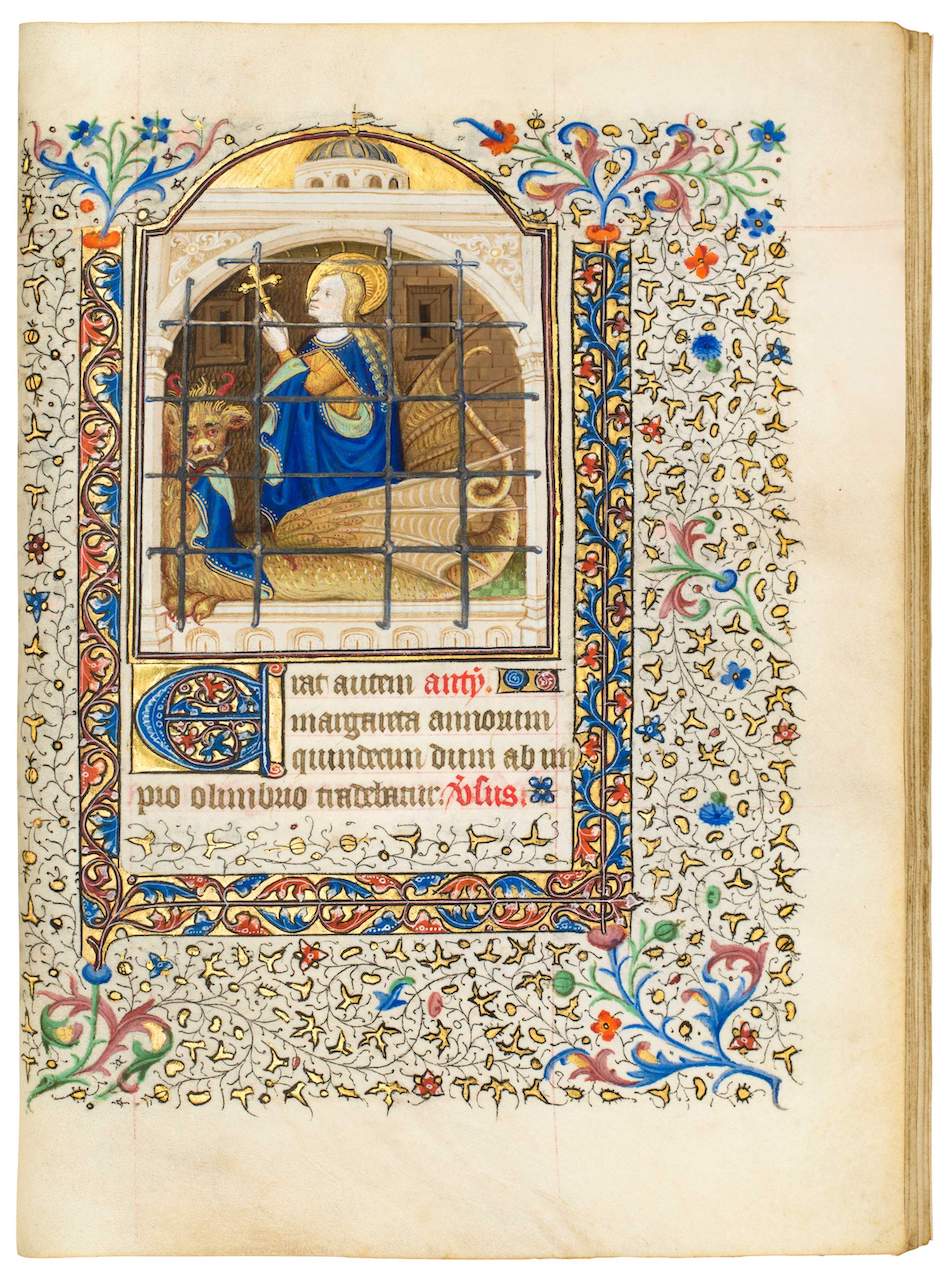 Erat autem antȳ.
margareta annorum
quindecim dum ab im
pio olimbrio tradebatur. v̄sus.